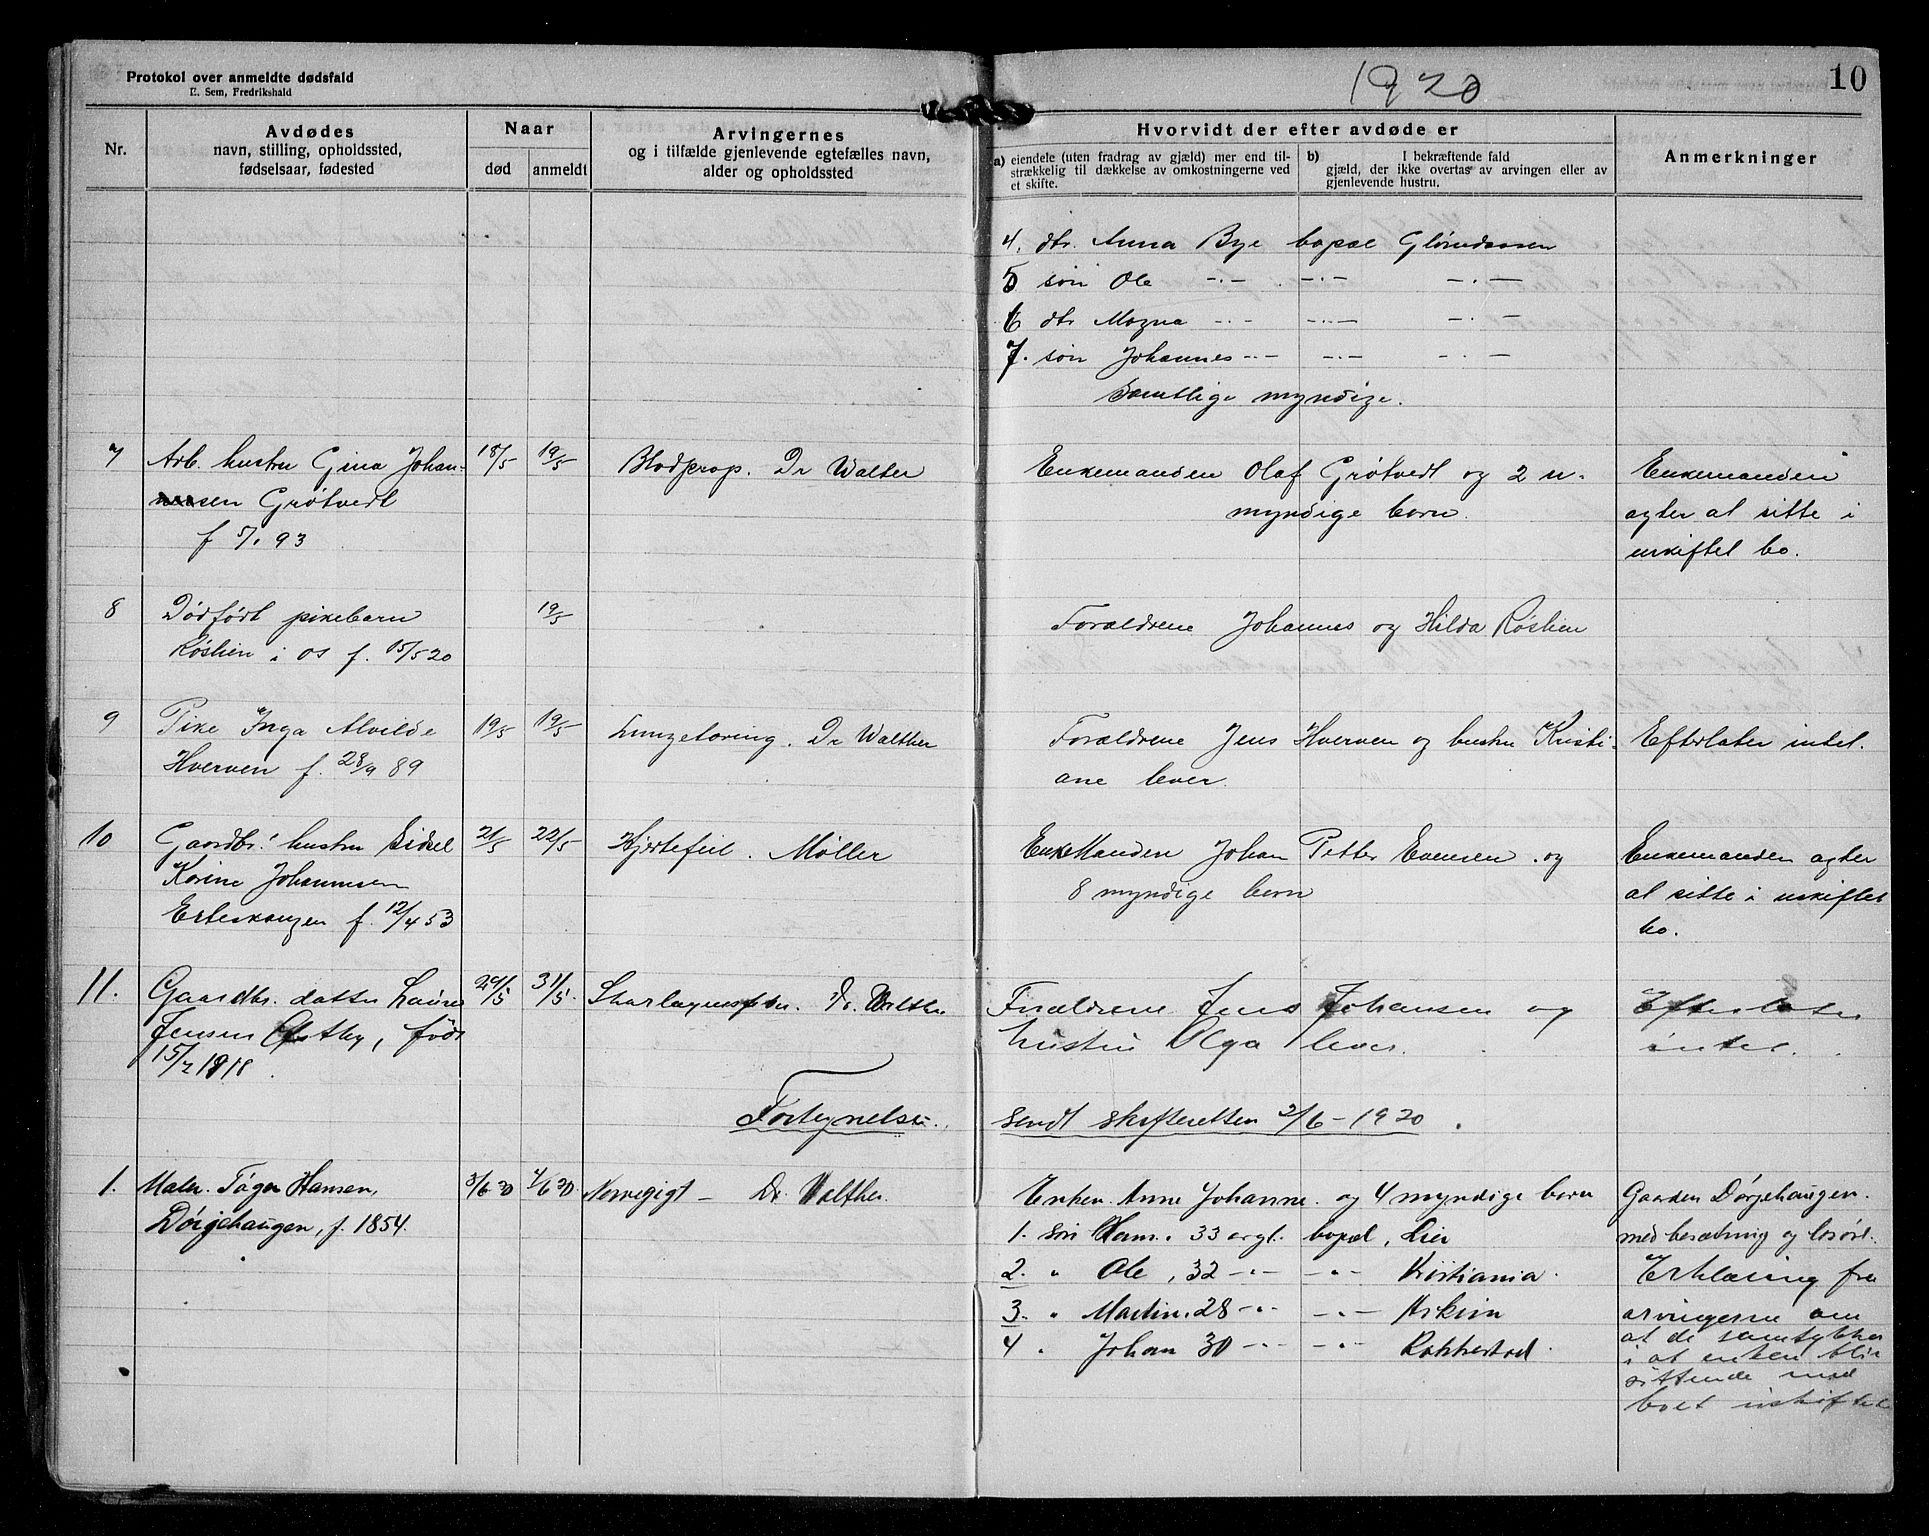 Protokol over anmeldte dødsfald
E. Sem, Fredrikshald
1920
10
Nr.
Avdødes
navn, stilling, opholdssted,
fødselsaar, fødested
Naar
død
anmeldt
Arvingernes
og i tilfælde gjenlevende egtefælles navn,
alder og opholdssted
Hvorvidt der efter avdøde er
a) eiendele (uten fradrag av gjæld) mer end til-
strækkelig til dækkelse av omkostningerne ved
et skifte.
b) I bekræftende fald
gjæld, der ikke overtas av arvingen eller av
gjenlevende hustru.
Anmerkninger
4. dtr. Anna Bye bopæl
5 søn Ole -·- -·- -·-
6 dtr Magna -·- -·- -·-
7. søn Johannes -·- -·- -·-
Samtlige myndige.
7
Arb. hustru Gina Johan-
sen Grøtvedt
f 5/1 93
18/5
19/5
Blodprop. Dr Walter
Enkemanden Olaf Grøtvedt og 2 u-
myndige børn.
Enkemanden
agter at sitte i
uskiftet bo.
8
Dødfødt pikebarn
i Os f. 15/5 20
19/5
Forældrene Johannes og Hilda
9
Pike Inga Alvilde
Hverven f. 28/9 89
19/5
19/5
Lungetæring. Dr Walther
Forældrene Jens Hverven og hustru Kristi-
ane lever.
Efterlater intet.
10
Gaardbr. hustru Sidsel
Karine Johannesen
Erteskaugen f. 12/4 53
21/5
22/5
Hjertefeil. Møller
Enkemanden Johan Petter Evensen. og
8 myndige børn
Enkemanden agter
at sitte i uskiftet
bo.
11.
Gaardbr. datter Laura
Jensen Østby, født
15/7 1918.
29/5
31/5.
Skarlagensfeber. Dr. Walther
Forældrene Jens Johansen og
hustru Olga lever.
Efterlater
intet.
Fortegnelse
sendt skifteretten 2/6-1920.
1.
Maler. Tøger Hansen,
Dørjehaugen, f. 1854.
3/6 20
4/6 20.
Nervegigt - Dr. Walther
Enken. Anne Johanne. og 4 myndige børn
1. søn Hans. 33 argl. bopæl, Lier
2. " Ole, 32 -"- -"- Kristiania.
3. " Martin. 28 -"- -"- Askim
4 " Johan 30 -"- -"- Rakkestad.
Gaarden Dørjehaugen.
med besætning og løsøre.
Erklæring fra
arvingerne om
at de samtykker
i at enken blir
sittende med
boet uskiftet